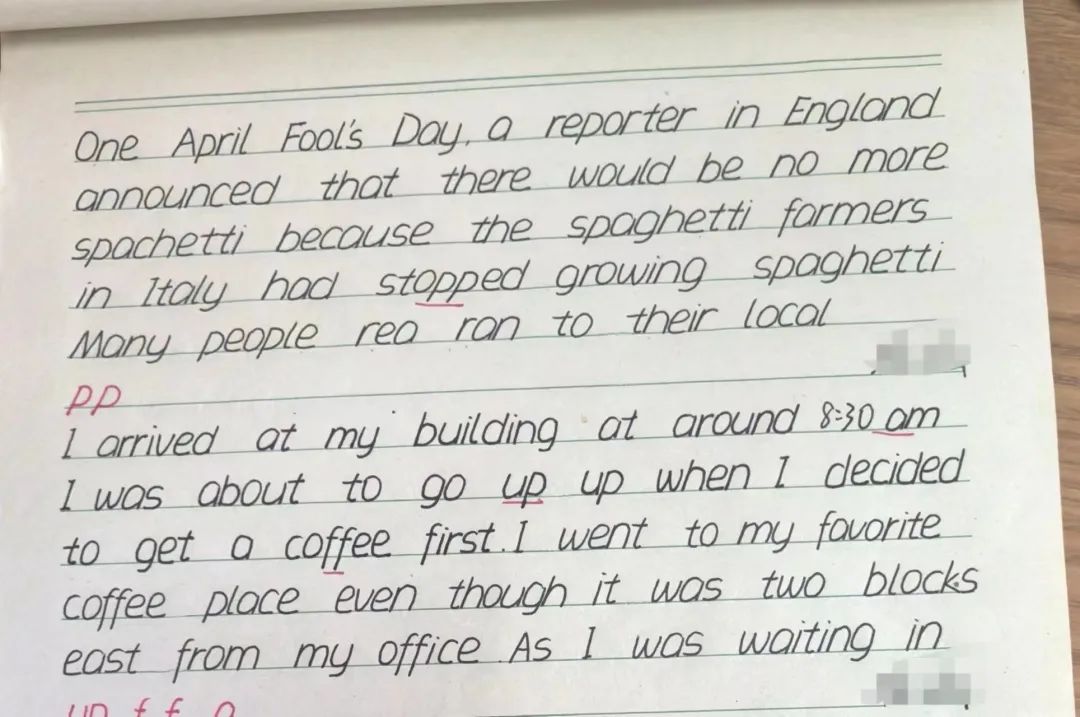 One April Fool's Day, a reporter in England
announced that there would be no more
spachetti because the spaghetti farmers
in Italy had stopped growing spaghetti
Many people rea ran to their local
pp
I arrived at my building at around 8:30 am
I was about to go up up when I decided
to get a coffee first. I went to my favorite
coffee place even though it was two blocks
east from my office. As I was waiting in